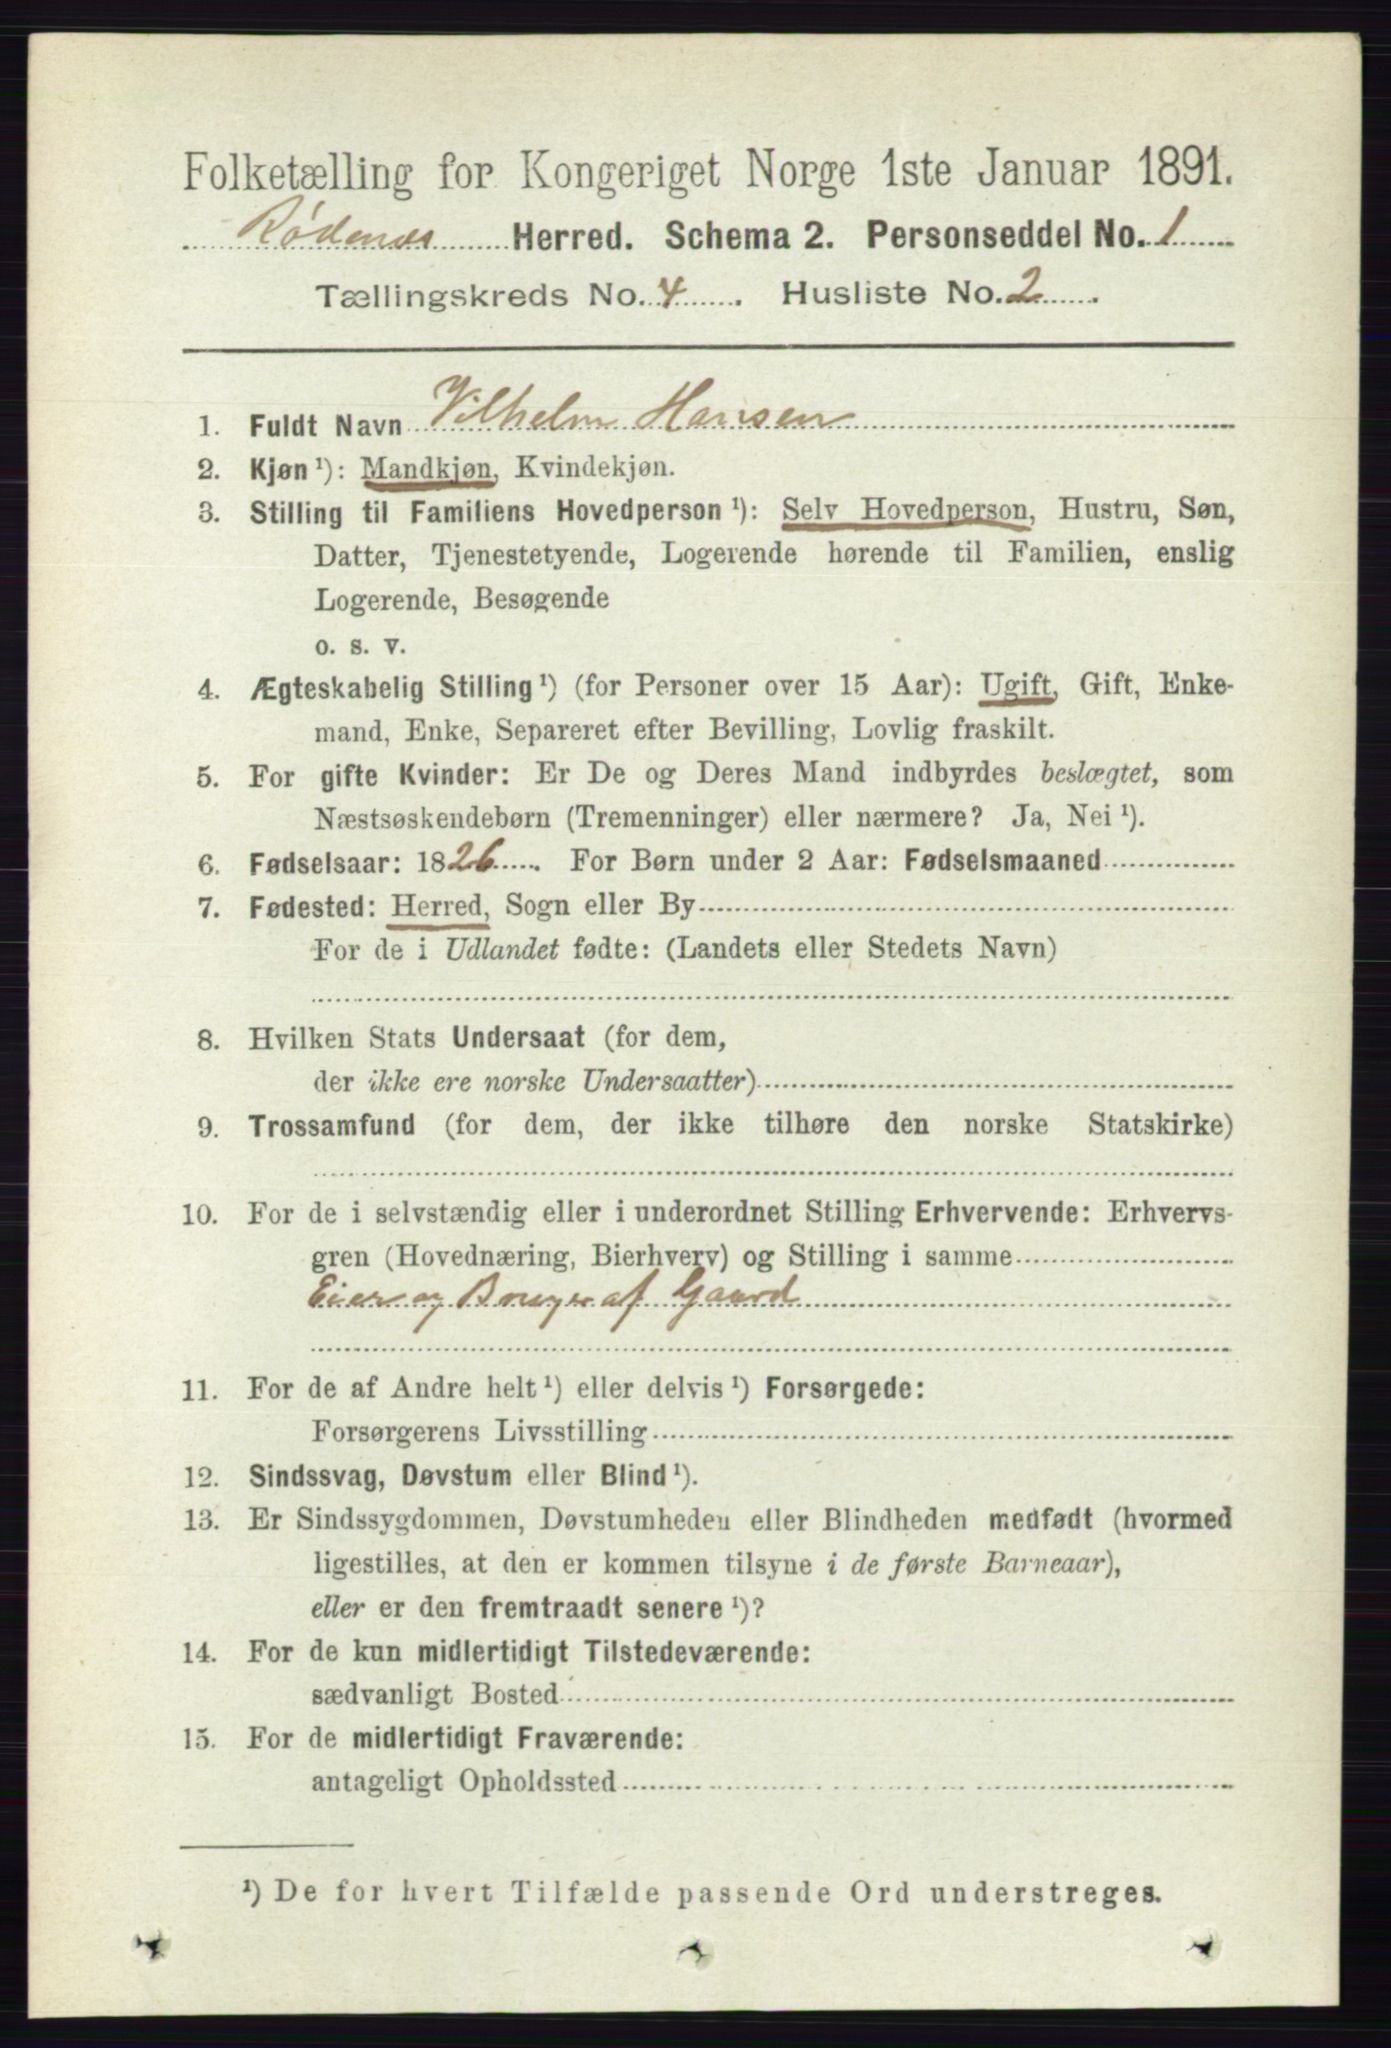 Folketælling for Kongeriget Norge 1ste Januar 1891.
Rødenes Herred. Schema 2. Personseddel No. 1
Tællingskreds No. 4. Husliste No. 2.
1. Fuldt Navn Vilhelm Hansen
2. Kjøn ¹): Mandkjøn, Kvindekjøn.
3. Stilling til Familiens Hovedperson ¹): Selv Hovedperson, Hustru, Søn,
Datter, Tjenestetyende, Logerende hørende til Familien, enslig
Logerende, Besøgende
o. s. v.
4. Ægteskabelig Stilling ¹) (for Personer over 15 Aar): Ugift, Gift, Enke-
mand, Enke, Separeret efter Bevilling, Lovlig fraskilt.
5. For gifte Kvinder: Er De og Deres Mand indbyrdes beslægtet, som
Næstsøskendebørn (Tremenninger) eller nærmere? Ja, Nei ¹).
6. Fødselsaar: 1826. For Børn under 2 Aar: Fødselsmaaned
7. Fødested: Herred, Sogn eller By
For de i Udlandet fødte: (Landets eller Stedets Navn)
8. Hvilken Stats Undersaat (for dem,
der ikke ere norske Undersaatter)
9. Trossamfund (for dem, der ikke tilhøre den norske Statskirke)
10. For de i selvstændig eller i underordnet Stilling Erhvervende: Erhvervs-
gren (Hovednæring, Bierhverv) og Stilling i samme
Eier og Bruger af Gaard
11. For de af Andre helt ¹) eller delvis ¹) Forsørgede:
Forsørgerens Livsstilling
12. Sindssvag, Døvstum eller Blind ¹).
13. Er Sindssygdommen, Døvstumheden eller Blindheden medfødt (hvormed
ligestilles, at den er kommen tilsyne i de første Barneaar),
eller er den fremtraadt senere ¹)?
14. For de kun midlertidigt Tilstedeværende:
sædvanligt Bosted
15. For de midlertidigt Fraværende:
antageligt Opholdssted
¹) De for hvert Tilfælde passende Ord understreges.